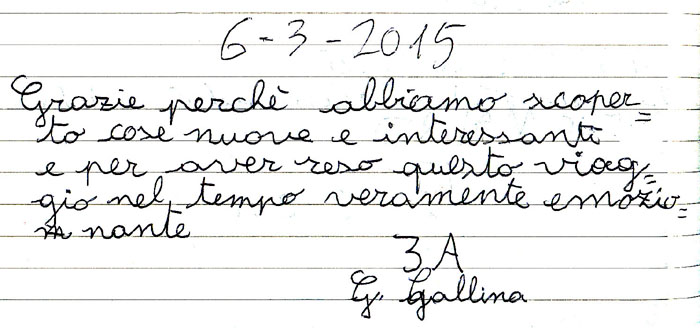 6-3-2015
Grazie perchè abbiamo scoper=
to cose nuove e interessanti
e per aver reso questo viag=
gio nel tempo veramente emozio=
nante
3A
G. Gallina